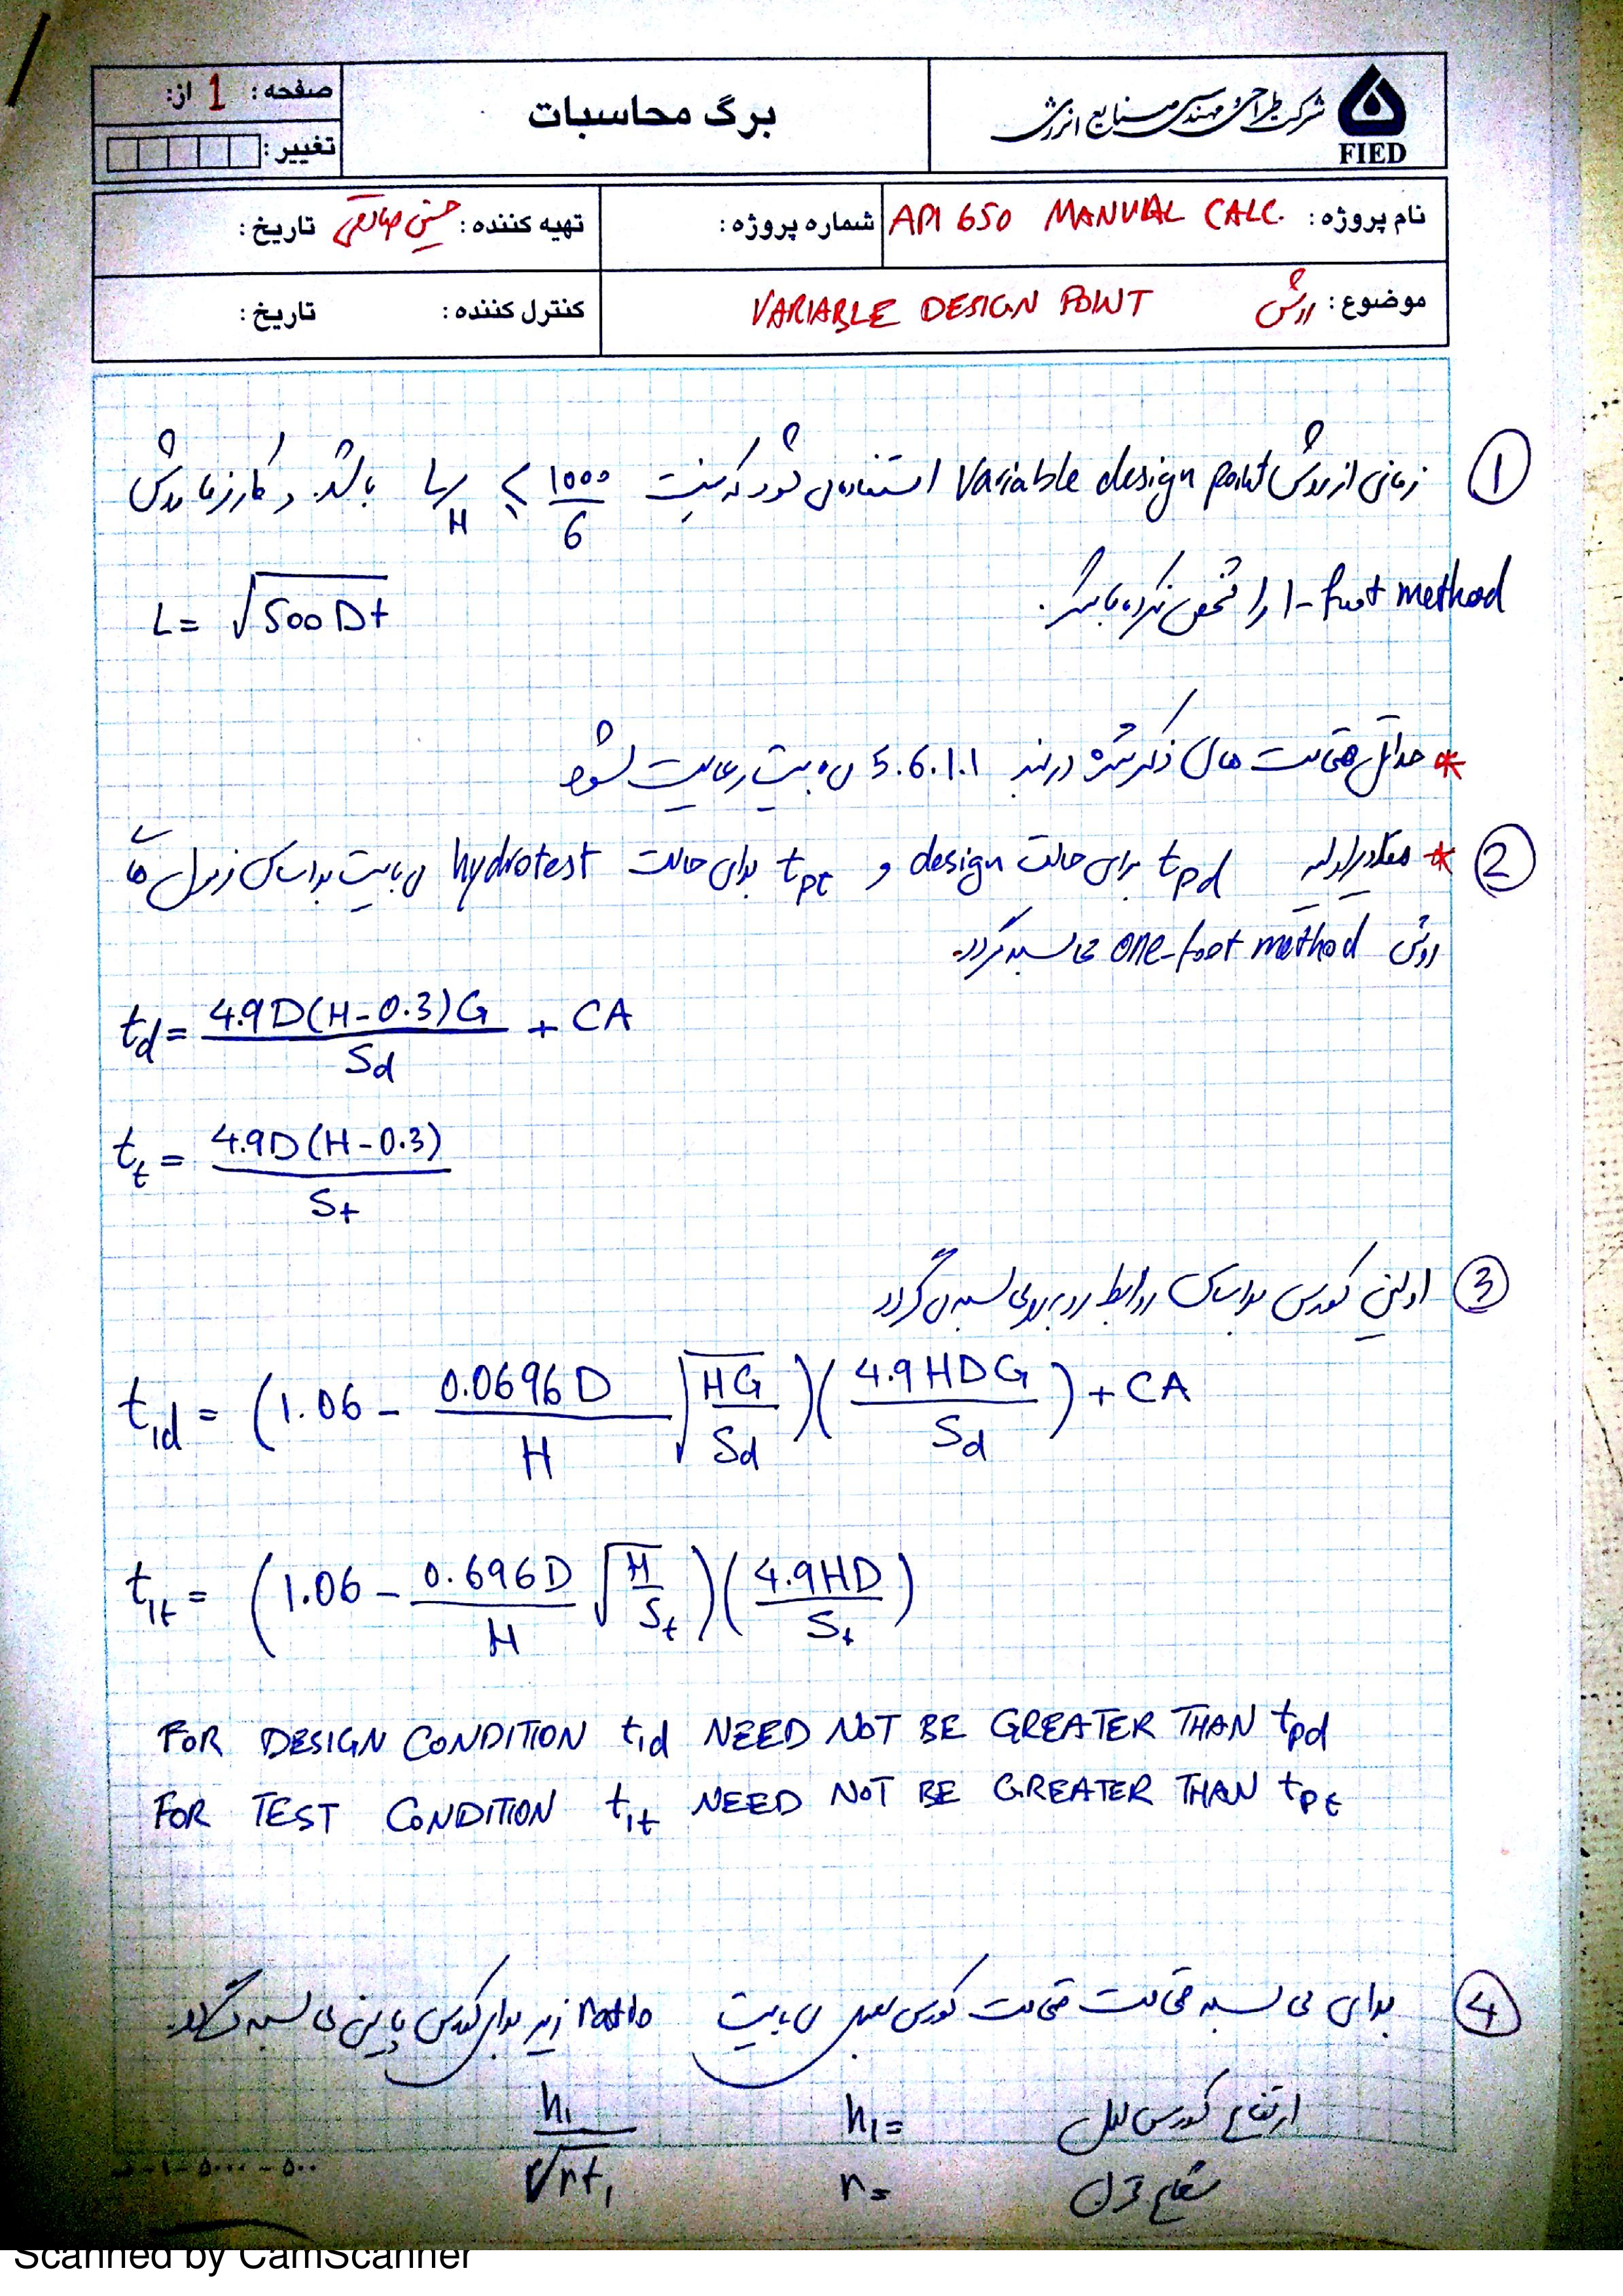 صفحه : 1 از:
تغییر :
برگ محاسبات
شرکت طراحی و مهندسی صنایع انرژی
FIED
نام پروژه : API 650 MANUAL CALC.
شماره پروژه :
تهیه کننده : تاریخ :
موضوع : روش VARIABLE DESIGN POINT
کنترل کننده : تاریخ :
① زمانی از روش Variable design point استفاده می شود که نسبت L/H ≤ 1000/6 باشد و کارفرما روش
1-foot method را مشخص نکرده باشد.
L = √500 Dt
* حداقل ضخامت های ذکر شده در بند 5.6.1.1 می بیست رعایت شود
② * مقادیر اولیه tpd برای حالت design و tpt برای حالت hydrotest می بایست براساس فرمول های
روش one-foot method محاسبه گردد.
td = 4.9D(H-0.3)G / Sd + CA
tt = 4.9D(H-0.3) / St
③ اولین کورس براساس روابط روبرو محاسبه می گردد
t1d = (1.06 - 0.0696D / H √HG/Sd)(4.9HDG / Sd) + CA
t1t = (1.06 - 0.696D / H √H/St)(4.9HD / St)
FOR DESIGN CONDITION t1d NEED NOT BE GREATER THAN tpd
FOR TEST CONDITION t1t NEED NOT BE GREATER THAN tpt
④ برای محاسبه ضخامت ضخامت کورس بعدی می بایست ratio زیر برای کورس پایین محاسبه گردد.
h1 / √rt1
h1= ارتفاع کورس اول
r= شعاع مخزن
Scanned by CamScanner